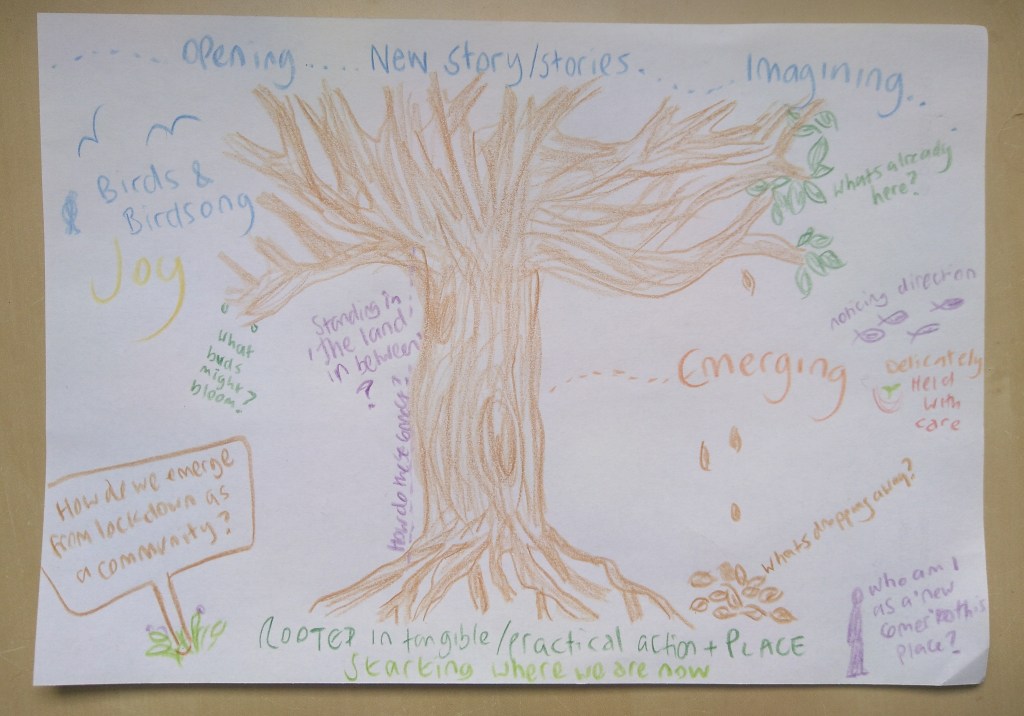 Opening..... New story/stories..... Imagining...
Birds &
Birdsong
Joy
whats already
here?
noticing direction
Standing in
'The land'
in between'
?
what
buds
might
bloom?
Emerging
Delicately
Held
with
care
How do we emerge
from lockdown as
a community?
whats dropping away?
who am I
as a 'new
comer' to this
place?
ROOTED in tangible/practical action + PLACE
Starting where we are now